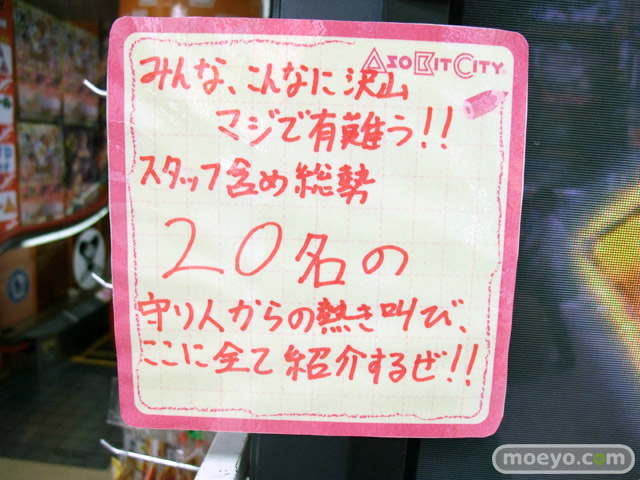 AsoBitCity
みんな、こんなに沢山
マジで有難う!!
スタッフ含め総勢
20名の
守り人からの熱き叫び、
ここに全て紹介するぜ!!
moeyo.com